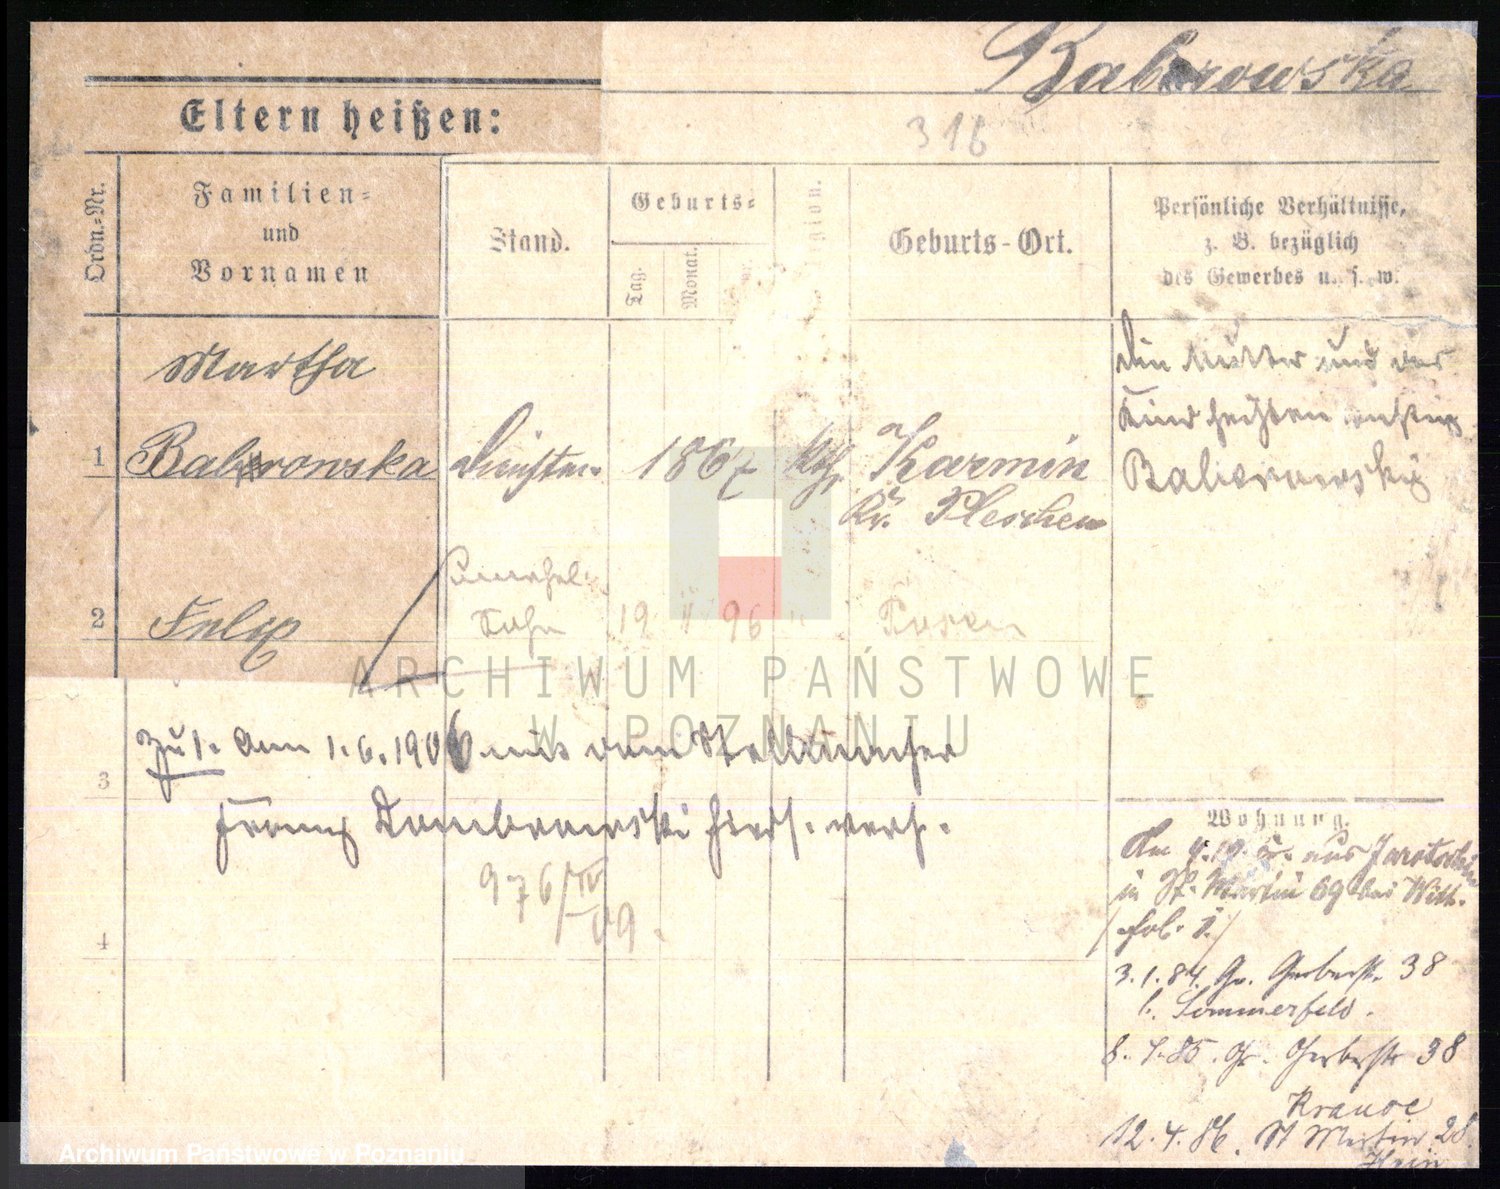 Babrowska
316
Eltern heißen:
Ordn.-Nr.
Familien-
und
Vornamen
Stand.
Geburts-
Tag.
Monat.
Geburts-Ort.
Persönliche Verhältnisse,
z. B. bezüglich
des Gewerbes u. s. w.
Martha
1 Babrowska Dienstm. 1867 kth. Karmin
Kr. Pleschen
Die Mutter und das
Kind heißen
2 Felix Sohn 19 96 " Posen
zu 1. Am 1.6.1906 mit dem Stellmacher
3
Franz Dombrowski hiers. verh.
976/IV 09.
4
Wohnung.
Am aus Jarotschin
in St. Martin 69 bei Witt.
3.1.84. Gr. Gerberstr. 38
b. Sommerfeld.
8.7.85. Gr. Gerberstr 38
Krause
12.4.86. St Martin 28
Hein
ARCHIWUM PAŃSTWOWE
W POZNANIU
Archiwum Państwowe w Poznaniu